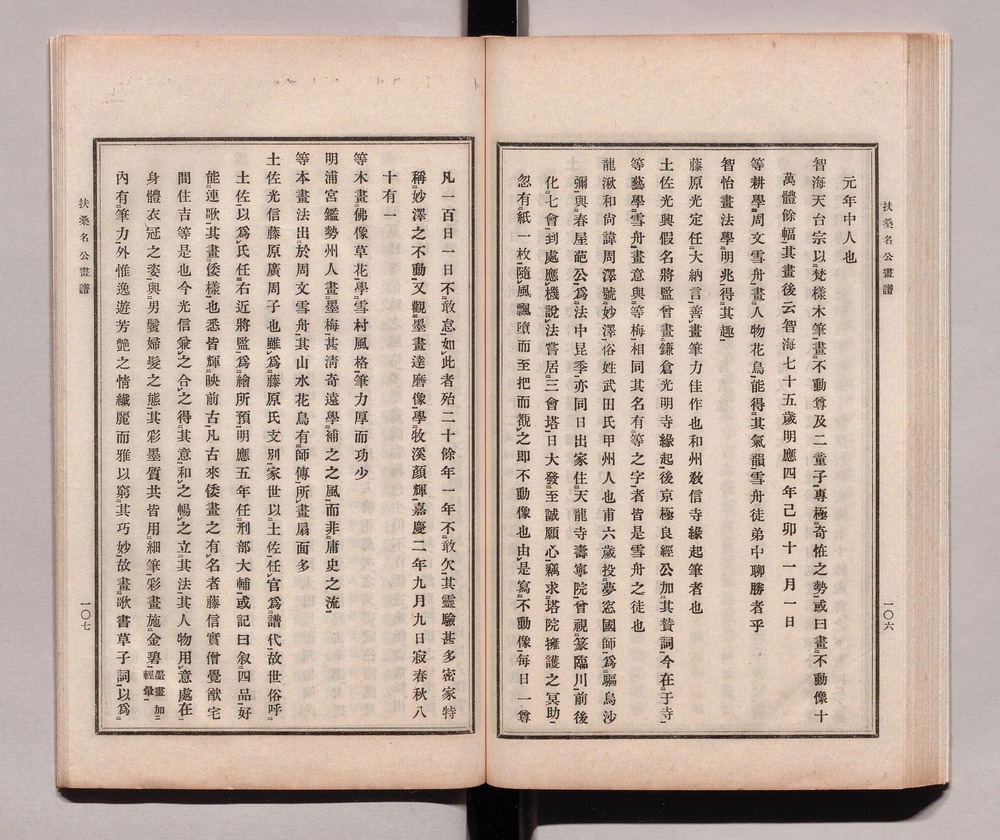 扶桑名公畫譜
元年中人也
智海天台宗以梵樣木筆畫不動尊及二童子專極奇恠之勢或曰畫不動像十
萬體餘幅其畫後云智海七十五歲明應四年己卯十一月一日
等耕學周文雪舟畫人物花鳥能得其氣韻雪舟徒弟中聊勝者乎
智怡畫法學明兆得其趣
藤原光定任大納言善畫筆力佳作也和州敎信寺緣起筆者也
土佐光興假名將監曾畫鎌倉光明寺緣起後京極良經公加其賛詞今在于寺
等藝學雪舟畫意與等梅相同其名有等之字者皆是雪舟之徒也
龍湫和尙諱周澤號妙澤俗姓武田氏甲州人也甫六歲投夢窓國師爲驅烏沙
彌與春屋葩公爲法中昆季亦同日出家住天龍寺壽寧院曾視篆臨川前後
化七會到處應機說法嘗居三會塔日大發至誠願心竊求塔院擁護之冥助
忽有紙一枚隨風飄墮而至把而覩之即不動像也由是寫不動像每日一尊
一〇六
凡一百日一日不敢怠如此者殆二十餘年一年不敢欠其靈驗甚多密家特
稱妙澤之不動又觀墨畫達磨像學牧溪顏輝嘉慶二年九月九日寂春秋八
十有一
等木畫佛像草花學雪村風格筆力厚而功少
明浦宮鑑勢州人畫墨梅甚淸奇遠學補之之風而非庸史之流
等本畫法出於周文雪舟其山水花鳥有師傳所畫扇面多
土佐光信藤原廣周子也雖爲藤原氏支別家世以土佐任官爲譜代故世俗呼
土佐以爲氏任右近將監爲繪所預明應五年任刑部大輔或記曰叙四品好
能連歌其畫倭樣也悉皆輝映前古凡古來倭畫之有名者藤信實僧覺猷宅
間住吉等是也今光信兼之合之得其意和之暢之立其法其人物用意處在
身體衣冠之姿與男鬢婦髮之態其彩墨質其皆用細筆彩畫施金碧墨畫加輕暈
內有筆力外惟逸遊芳艷之情纎麗而雅以窮其巧妙故畫歌書草子詞以爲
扶桑名公畫譜
一〇七